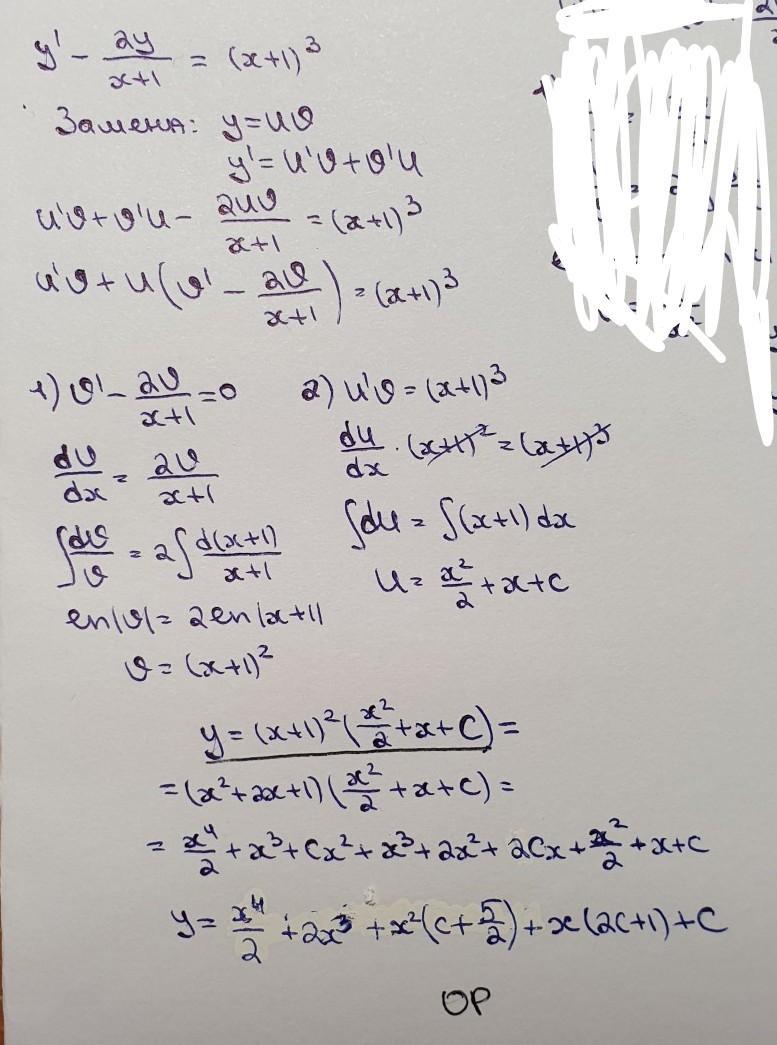 y' - 2y/(x+1) = (x+1)^3
Замена: y=uϑ
y'= u'ϑ+ϑ'u
u'ϑ+ϑ'u - 2uϑ/(x+1) = (x+1)^3
u'ϑ+u(ϑ' - 2ϑ/(x+1)) = (x+1)^3
1) ϑ' - 2ϑ/(x+1) =0
dϑ/dx = 2ϑ/(x+1)
∫dϑ/ϑ = 2∫d(x+1)/(x+1)
ln|ϑ|= 2ln|x+1|
ϑ= (x+1)^2
2) u'ϑ = (x+1)^3
du/dx · (x+1)^2 = (x+1)^3
∫du = ∫(x+1) dx
u = x^2/2 + x + c
y= (x+1)^2 (x^2/2 + x + C) =
= (x^2+2x+1) (x^2/2 + x + C) =
= x^4/2 + x^3 + Cx^2 + x^3 + 2x^2 + 2Cx + x^2/2 + x + C
y= x^4/2 + 2x^3 + x^2(C + 5/2) + x(2C+1) + C
ОР